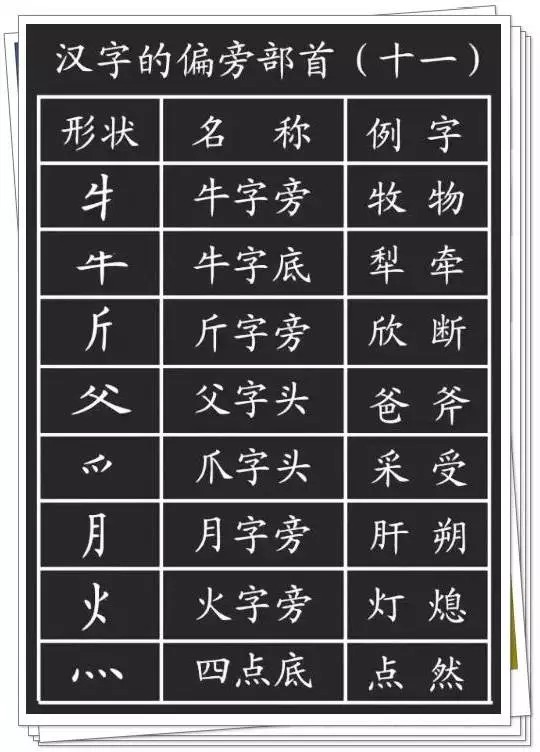 汉字的偏旁部首（十一）
形状 名称 例字
牜 牛字旁 牧物
牛 牛字底 犁牵
斤 斤字旁 欣断
父 父字头 爸斧
爫 爪字头 采受
月 月字旁 肝朔
火 火字旁 灯熄
灬 四点底 点然